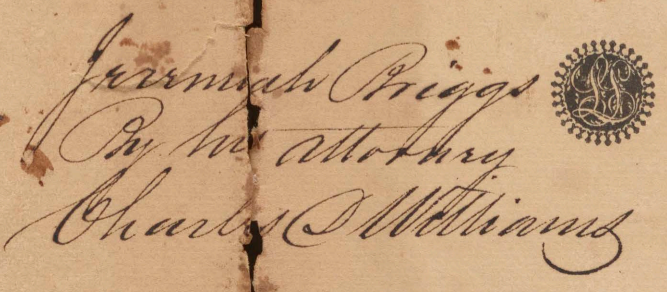 Jeremiah Briggs
LS
By his attorney
Charles D Williams